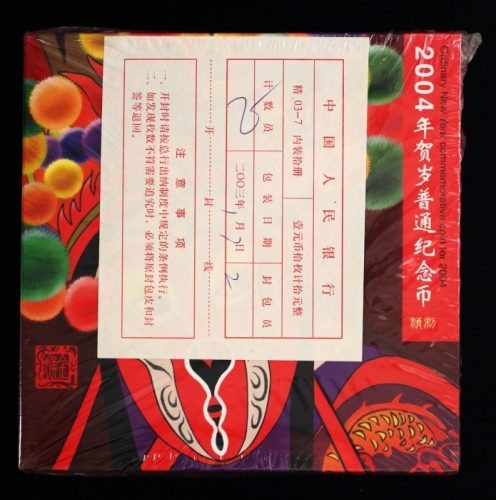 Ordinary New York commemorative coin for 2004
2004年贺岁普通纪念币
精制
中国人民银行
精 03-7 内装拾册 壹元币拾枚计拾元整
计数员 包装日期 封包员
二00三年 月 日 2
开 封 线
注意事项
一、开封时请按总行出纳制度中规定的条例执行。
二、如发现枚数不符需要追究时,必须将原封包皮和封
签等退回。